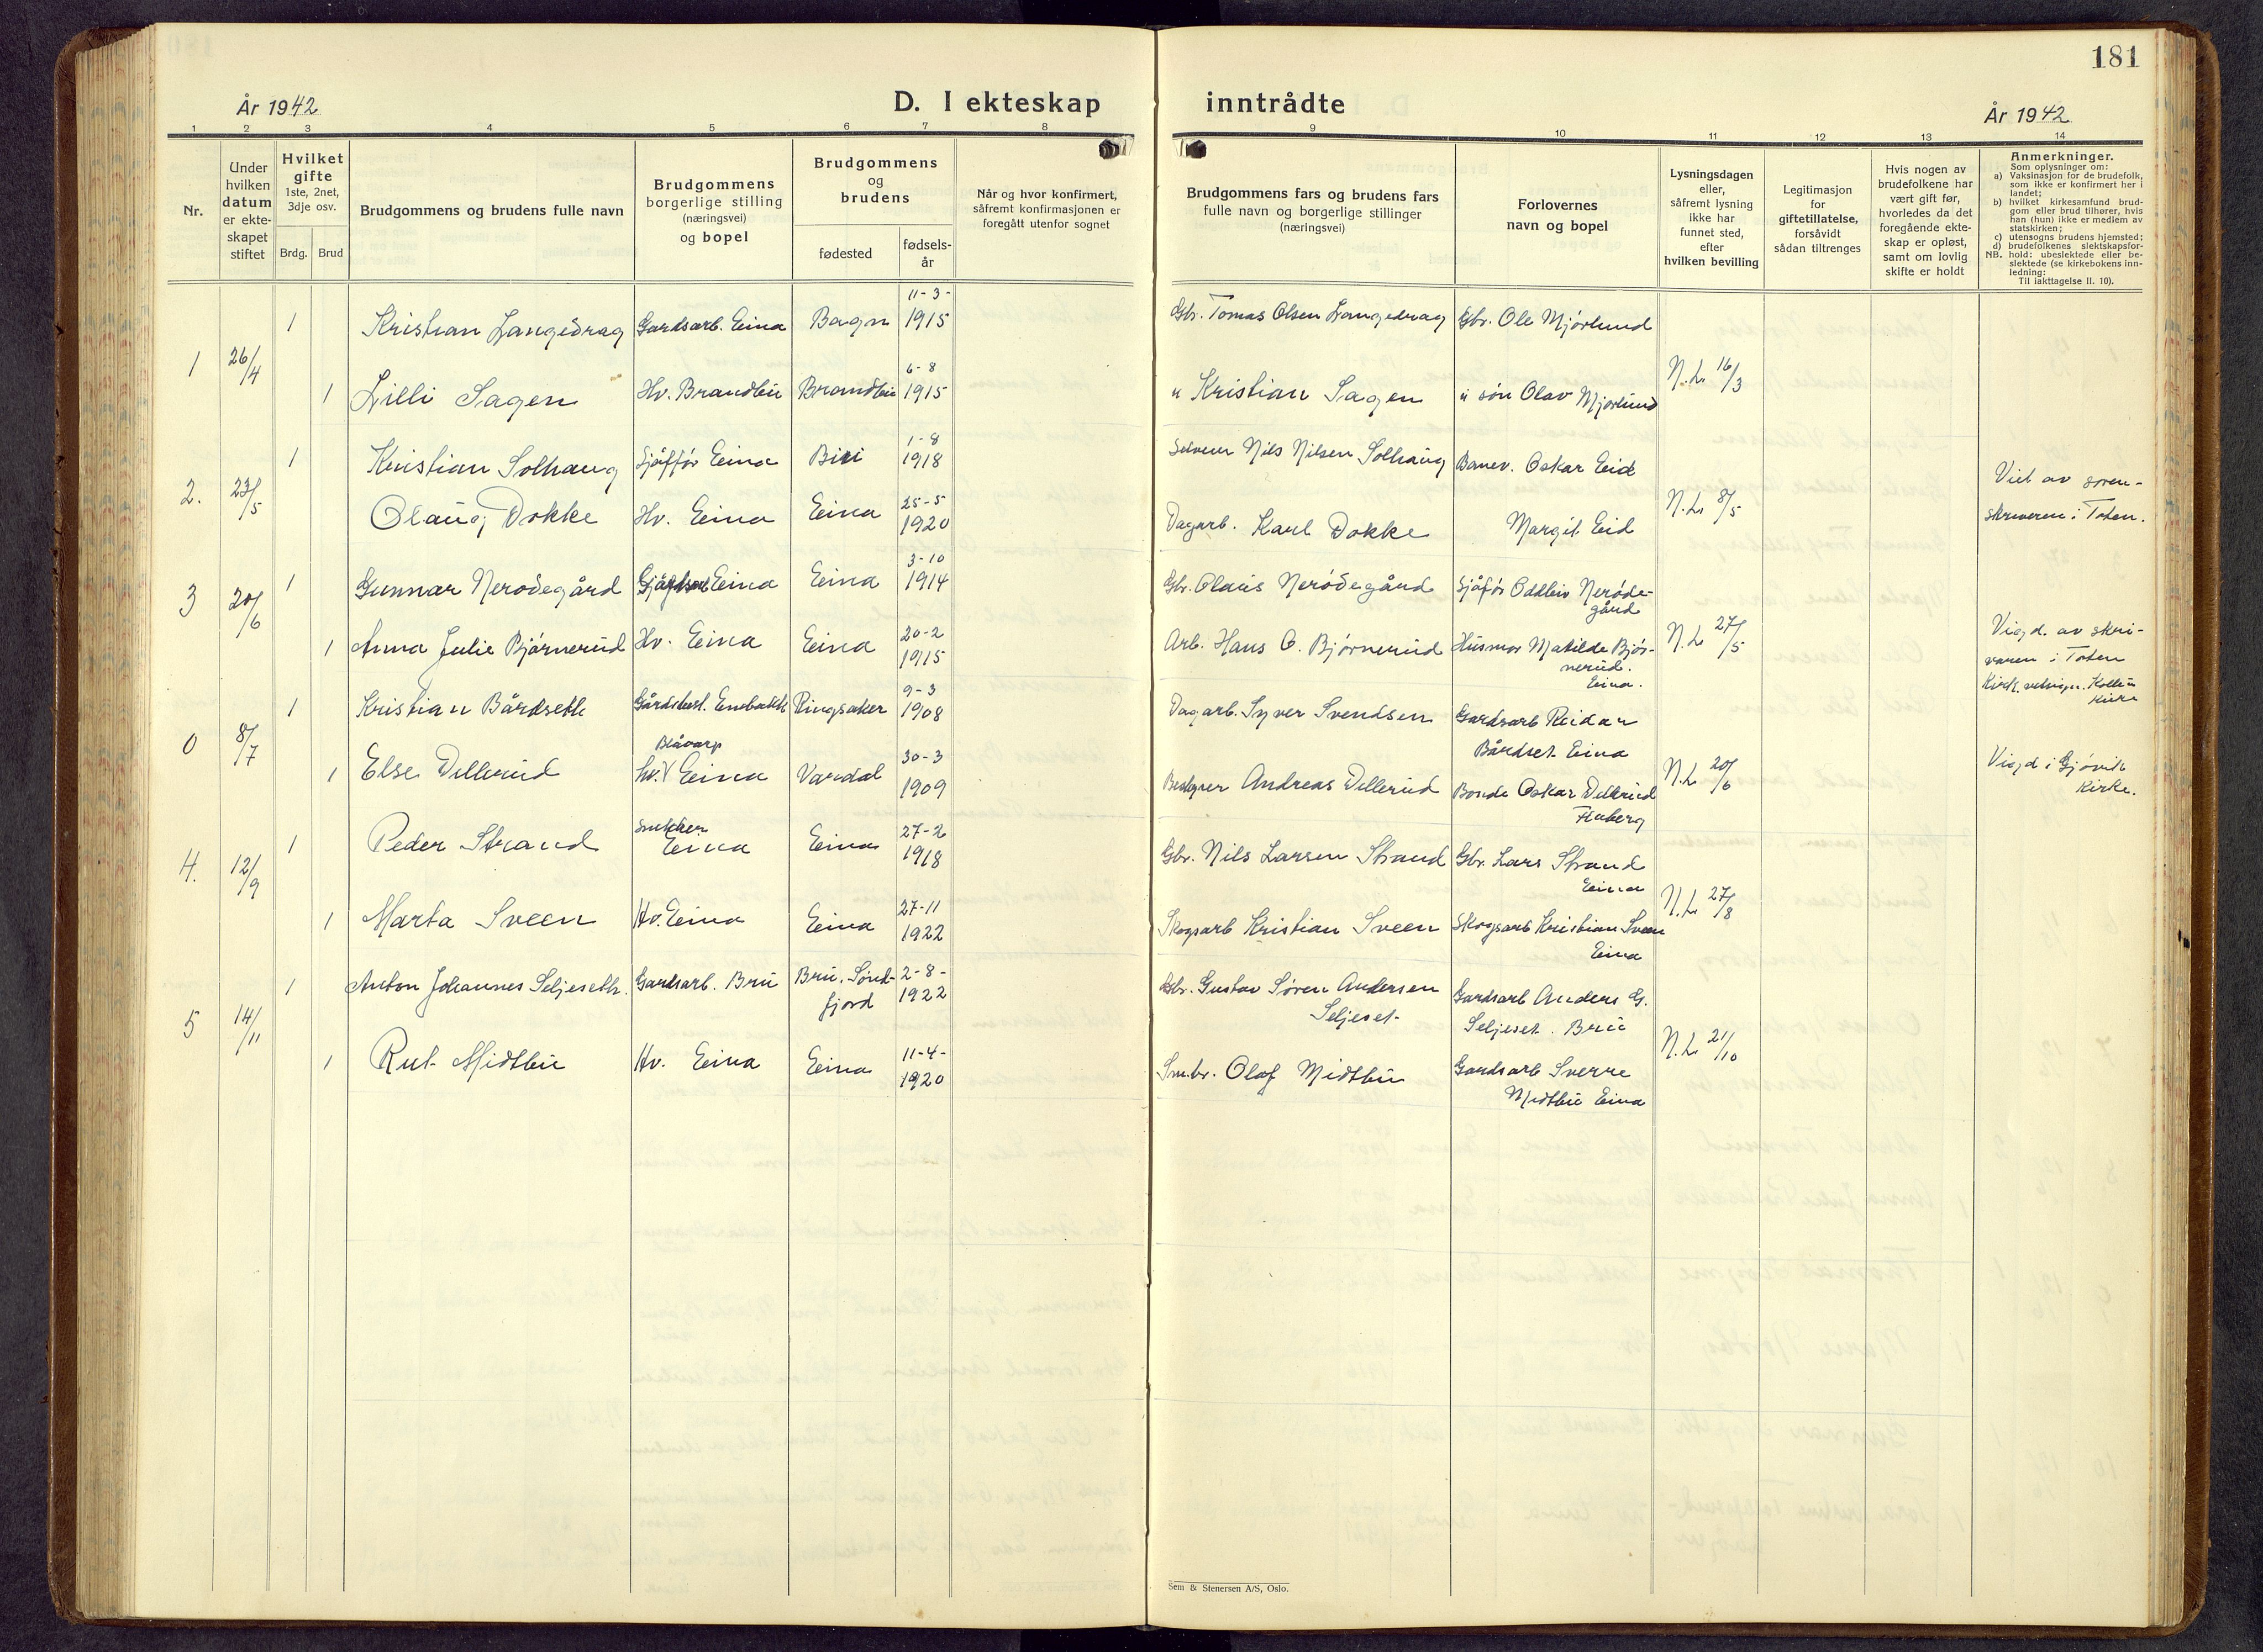 181
År 1942
D. I ekteskap
inntrådte
År 1942
1 2 3 4 5 6 7 8 9 10 11 12 13 14
Nr.
Under
hvilken
datum
er ekte-
skapet
stiftet
Hvilket
gifte
1ste, 2net,
3dje osv.
Brdg. Brud
Brudgommens og brudens fulle navn
Brudgommens
borgerlige stilling
(næringsvei)
og bopel
Brudgommens
og
brudens
fødested
fødsels-
år
Når og hvor konfirmert,
såfremt konfirmasjonen er
foregått utenfor sognet
Brudgommens fars og brudens fars
fulle navn og borgerlige stillinger
(næringsvei)
Forlovernes
navn og bopel
Lysningsdagen
eller,
såfremt lysning
ikke har
funnet sted,
efter
hvilken bevilling
Legitimasjon
for
giftetillatelse,
forsåvidt
sådan tiltrenges
Hvis nogen av
brudefolkene har
vært gift før,
hvorledes da det
foregående ekte-
skap er opløst,
samt om lovlig
skifte er holdt
Anmerkninger.
Som oplysninger om:
a) Vaksinasjon for de brudefolk,
som ikke er konfirmert her i
landet;
b) hvilket kirkesamfund brud-
gom eller brud tilhører, hvis
han (hun) ikke er medlem av
statskirken;
c) utensogns brudens hjemsted;
d) brudefolkenes slektskapsfor-
NB. hold: ubeslektede eller be-
slektede (se kirkebokens inn-
ledning:
Til iakttagelse II. 10).
1 26/4
1 Kristian Langedrag Gardsarb. Eina Bagn 11-3-1915 Gbr. Tomas Olsen Langedrag Gbr. Ole Mjørlund
1 Lilli Sagen Hv. Brandbu Brandbu 6-8 1915 " Kristian Sagen " søn Olav Mjørlund N.L. 16/3
2. 23/5
1 Kristian Solhaug Sjåffør Eina Biri 1-8 1918 Nils Nilsen Solhaug Banev. Oskar Eid
Olaug Dokke Hv. Eina Eina 25-5 1920 Dagarb. Karl Dokke Margit Eid N.L. 8/5
Viet av soren-
skriveren i Toten.
3 20/6
1 Gunnar Nerødegård Eina Eina 3-10 1914 Gbr. Olaus Nerødegård Sjåfør Oddleiv Nerøde-
gård
1 Anna Julie Bjørnerud Hv. Eina Eina 20-2 1915 Arb. Hans O. Bjørnerud Husmor Matilde Bjør-
nerud.
Eina.
N.L. 27/5
Vigd. av skri-
varen i Toten
Kirk. velsign. Kolbu
Kirke
0 8/7
1 Kristian Bårdseth Gårdsbest. Enebakk Ringsaker 9-3 1908 Dagarb. Syver Svendsen Gardsarb Reidar
Bårdset. Eina
1 Else Dellerud Hv. Blåvarp Eina Vardal 30-3 1909 Bestyrer Andreas Dellerud Bonde Oskar Dellerud
Fluberg
N.L. 20/6
Vigd i Gjøvik
Kirke.
4. 12/9
1 Peder Strand Snekker
Eina Eina 27-2 1918 Gbr. Nils Larsen Strand Gbr. Lars Strand
Eina
1 Marta Sveen Hv. Eina Eina 27-11 1922 Skogsarb Kristian Sveen Skogsarb Kristian Sveen
Eina
N.L. 27/8
5 14/11
1 Anton Johannes Seljeseth. Gardsarb. Bru Bru, Sønd-
fjord 2-8-1922 Gbr. Gustav Søren Andersen
Seljeset. Gardsarb Anders G.
Seljeset. Bru
1 Rut Midtbu Hv. Eina Eina 11-4-1920 Sm.br. Olaf Midtbu Gardsarb Sverre
Midtbu Eina
N.L. 21/10
Sem & Stenersen A/S, Oslo.